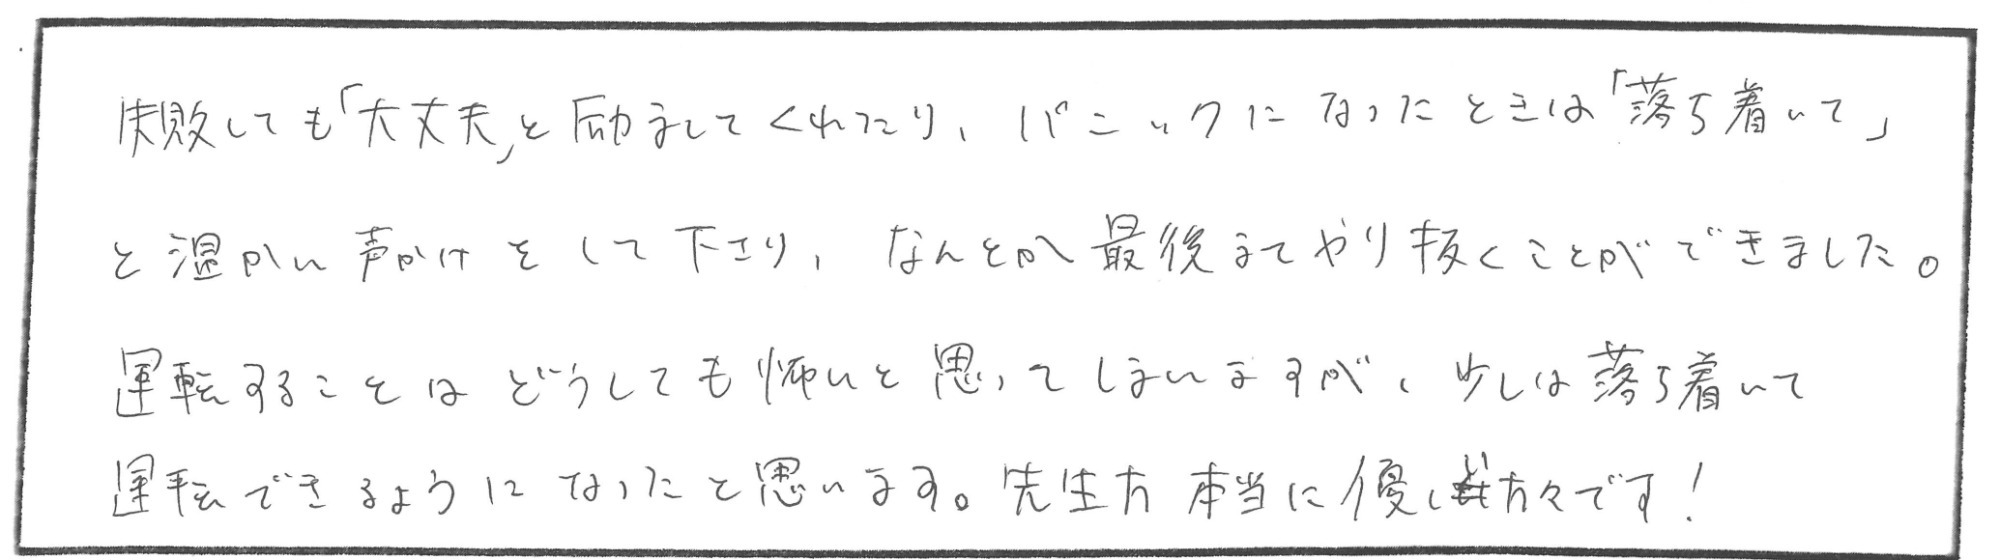 失敗しても「大丈夫」と励ましてくれたり、パニックになったときは「落ち着いて」
と温かい声かけをして下さり、なんとか最後までやり抜くことができました。
運転することはどうしても怖いと思ってしまいますが、少しは落ち着いて
運転できるようになったと思います。先生方本当に優し方々です！